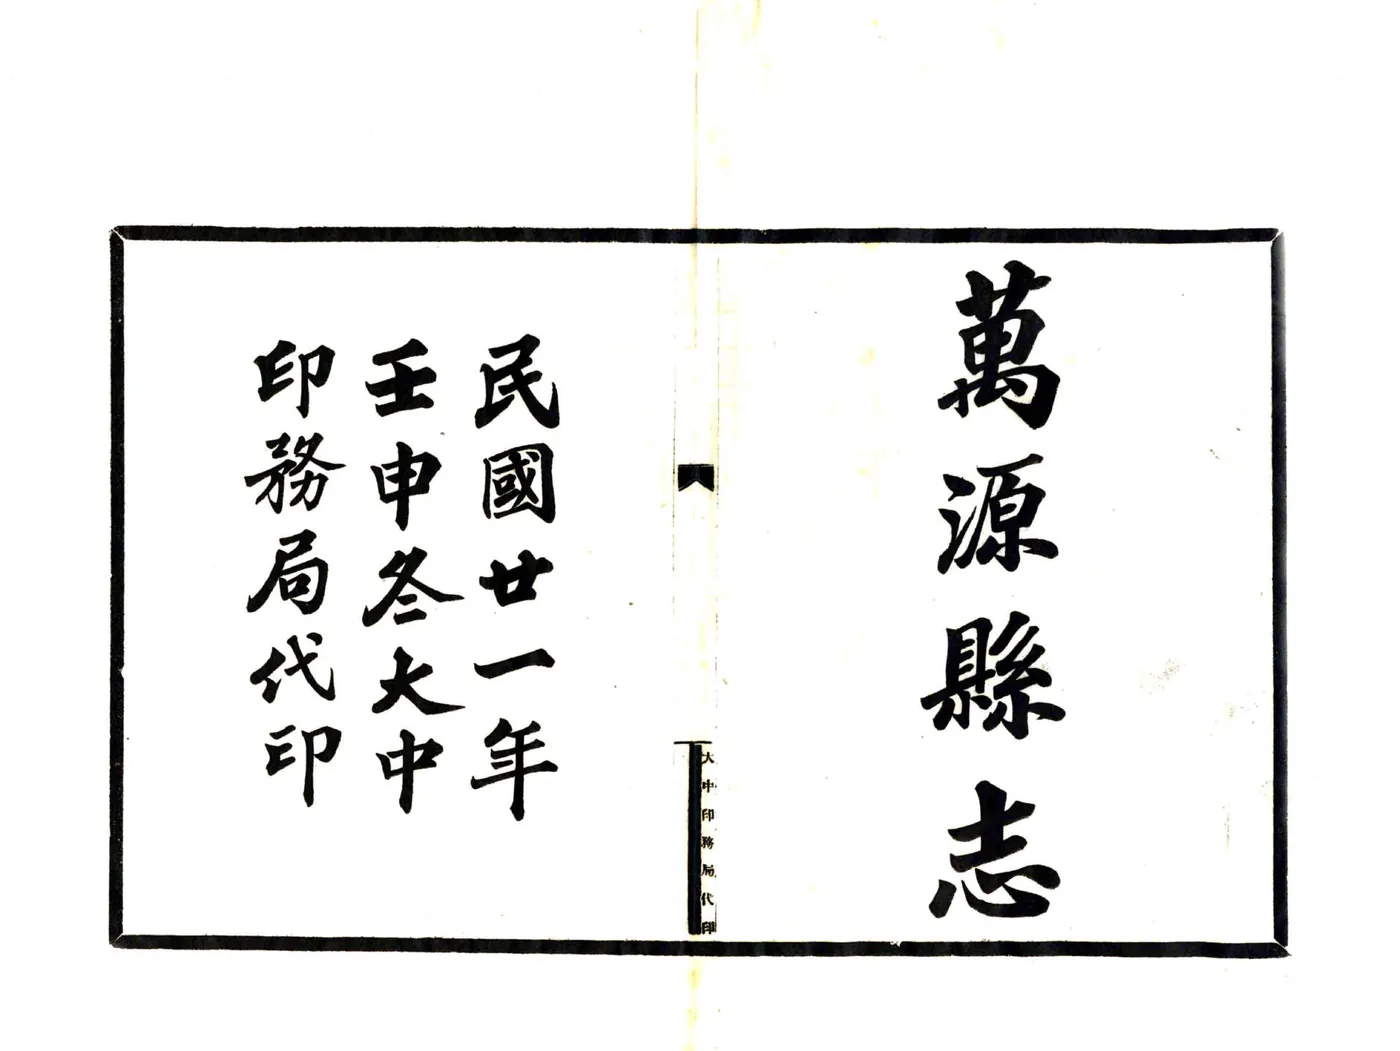 萬源縣志
大中印務局代印
民國廿一年
壬申冬大中
印務局代印